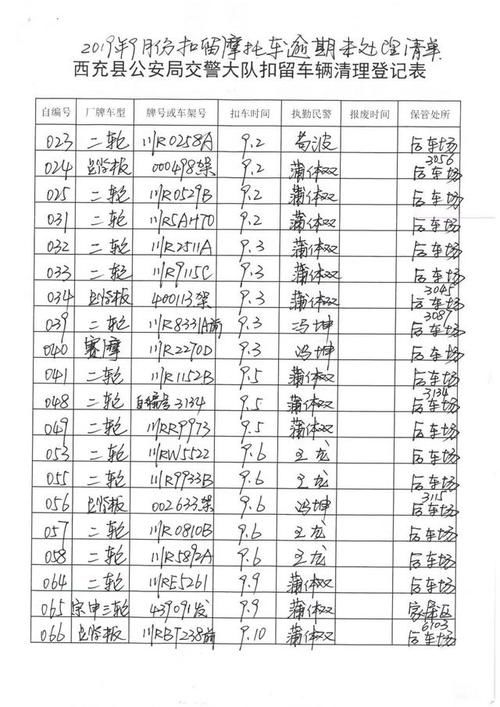 2019年9月份扣留摩托车逾期未处理清单
西充县公安局交警大队扣留车辆清理登记表
自编号 厂牌车型 牌号或车架号 扣车时间 执勤民警 报废时间 保管处所
023 二轮 川R0258A 9.2 苟波 后车场
024 踏板 000498架 9.2 蒲体双 3056 后车场
025 二轮 川R0529B 9.2 蒲体双 后车场
031 二轮 川R5AH70 9.2 蒲体双 后车场
032 二轮 川R2511A 9.3 蒲体双 后车场
033 二轮 川R9115C 9.3 蒲体双 后车场
034 踏板 400113架 9.3 蒲体双 3045 后车场
039 二轮 川R8331A前 9.3 冯坤 3087 后车场
040 赛摩 川R2270D 9.3 冯坤 后车场
041 二轮 川R1152B 9.5 蒲体双 后车场
048 二轮 自编号3134 9.5 蒲体双 3134 后车场
049 二轮 川RR9973 9.5 蒲体双 后车场
053 二轮 川RW5522 9.6 王龙 后车场
055 二轮 川R9933B 9.6 王龙 后车场
056 踏板 002633架 9.6 冯坤 3115 后车场
057 二轮 川R0810B 9.6 王龙 后车场
058 二轮 川R5892A 9.6 王龙 后车场
064 二轮 川RE5261 9.9 蒲体双 后车场
065 宗申三轮 439091发 9.9 蒲体双 家属区
066 踏板 川RBT238前 9.10 蒲体双 6103 后车场